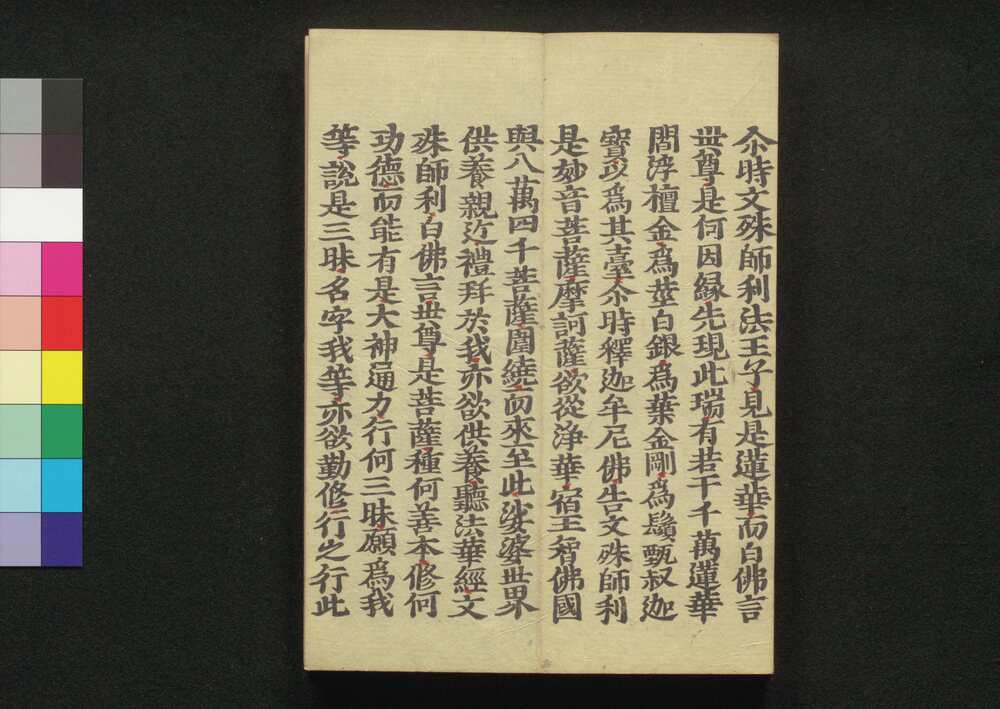 尒時文殊師利法王子見是蓮華而白佛言
世尊是何因縁先現此瑞有若干千萬蓮華
閻浮檀金爲莖白銀爲葉金剛爲鬚甄叔迦
寳以爲其臺尒時釋迦牟尼佛告文殊師利
是妙音菩薩摩訶薩欲從浄華宿王智佛國
與八萬四千菩薩圍繞而來至此娑婆世界
供養親近禮拜於我亦欲供養聽法華經文
殊師利白佛言世尊是菩薩種何善本修何
功德而能有是大神通力行何三昧願爲我
等說是三昧名字我等亦欲勤修行之行此